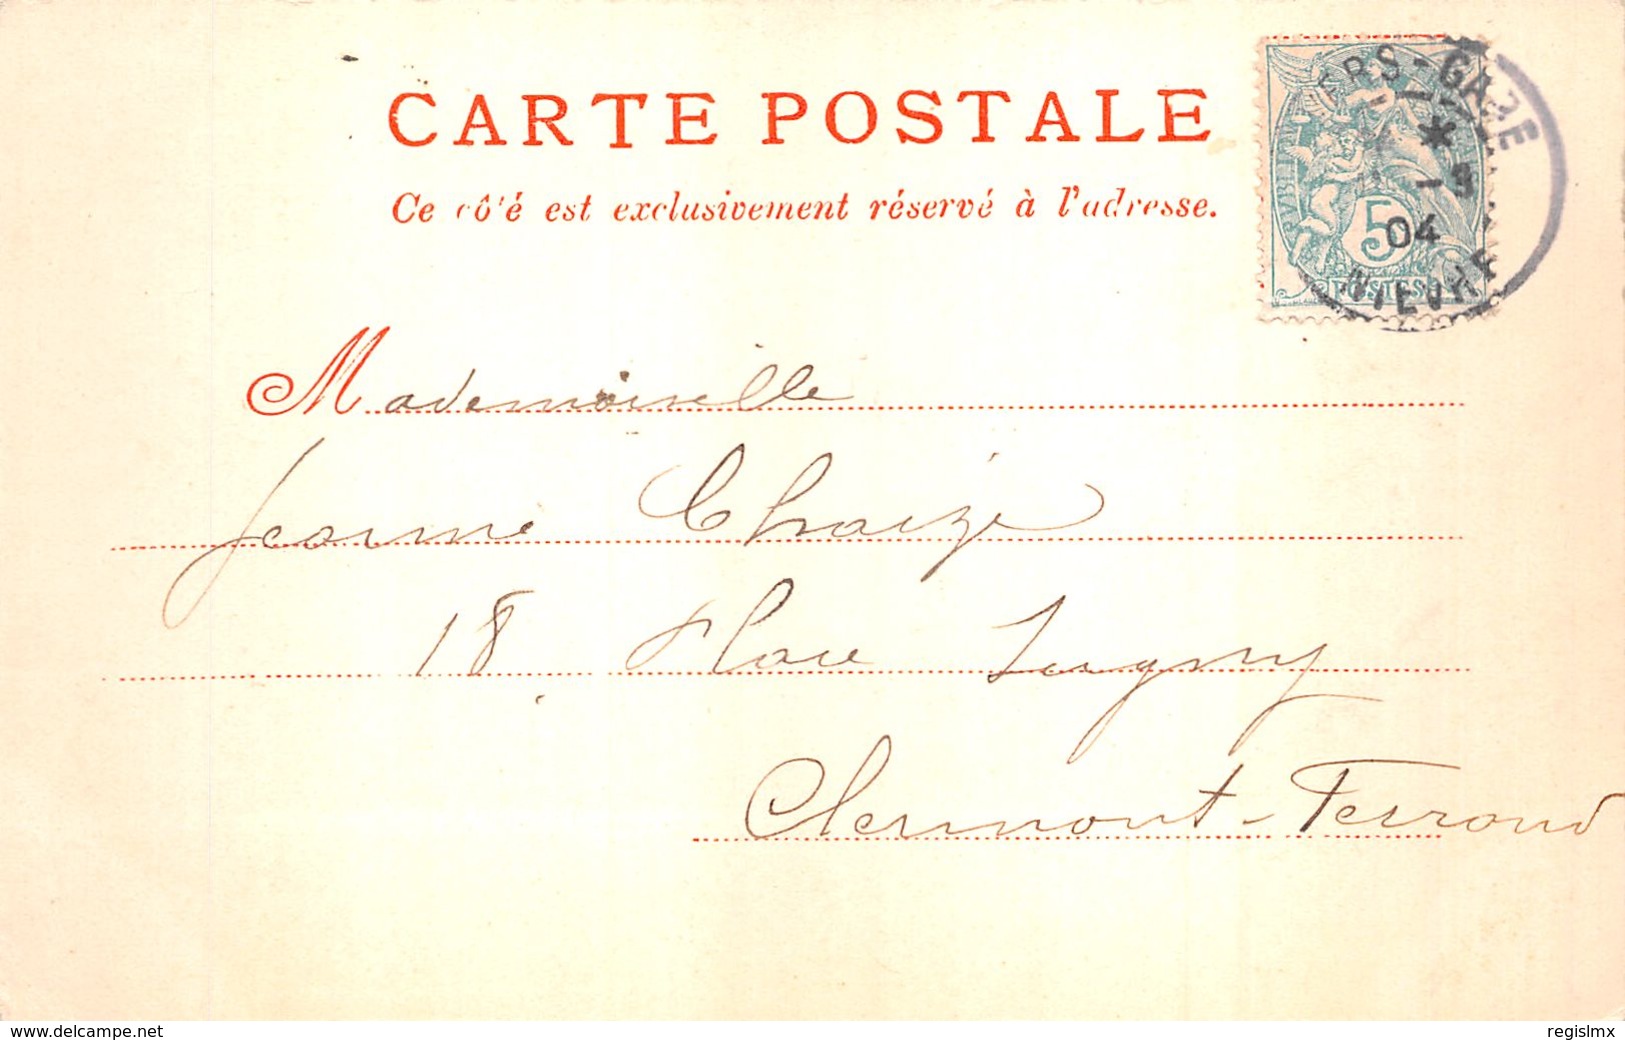 CARTE POSTALE
Ce cô'é est exclusivement réservé à l'adresse.
ERS-GARE
*
-9
04
NIEVRE
5
POSTES
Mademoiselle
Jeanne Chaize
18 Place Sugny
Clermont-Ferrand
www.delcampe.net
regislmx